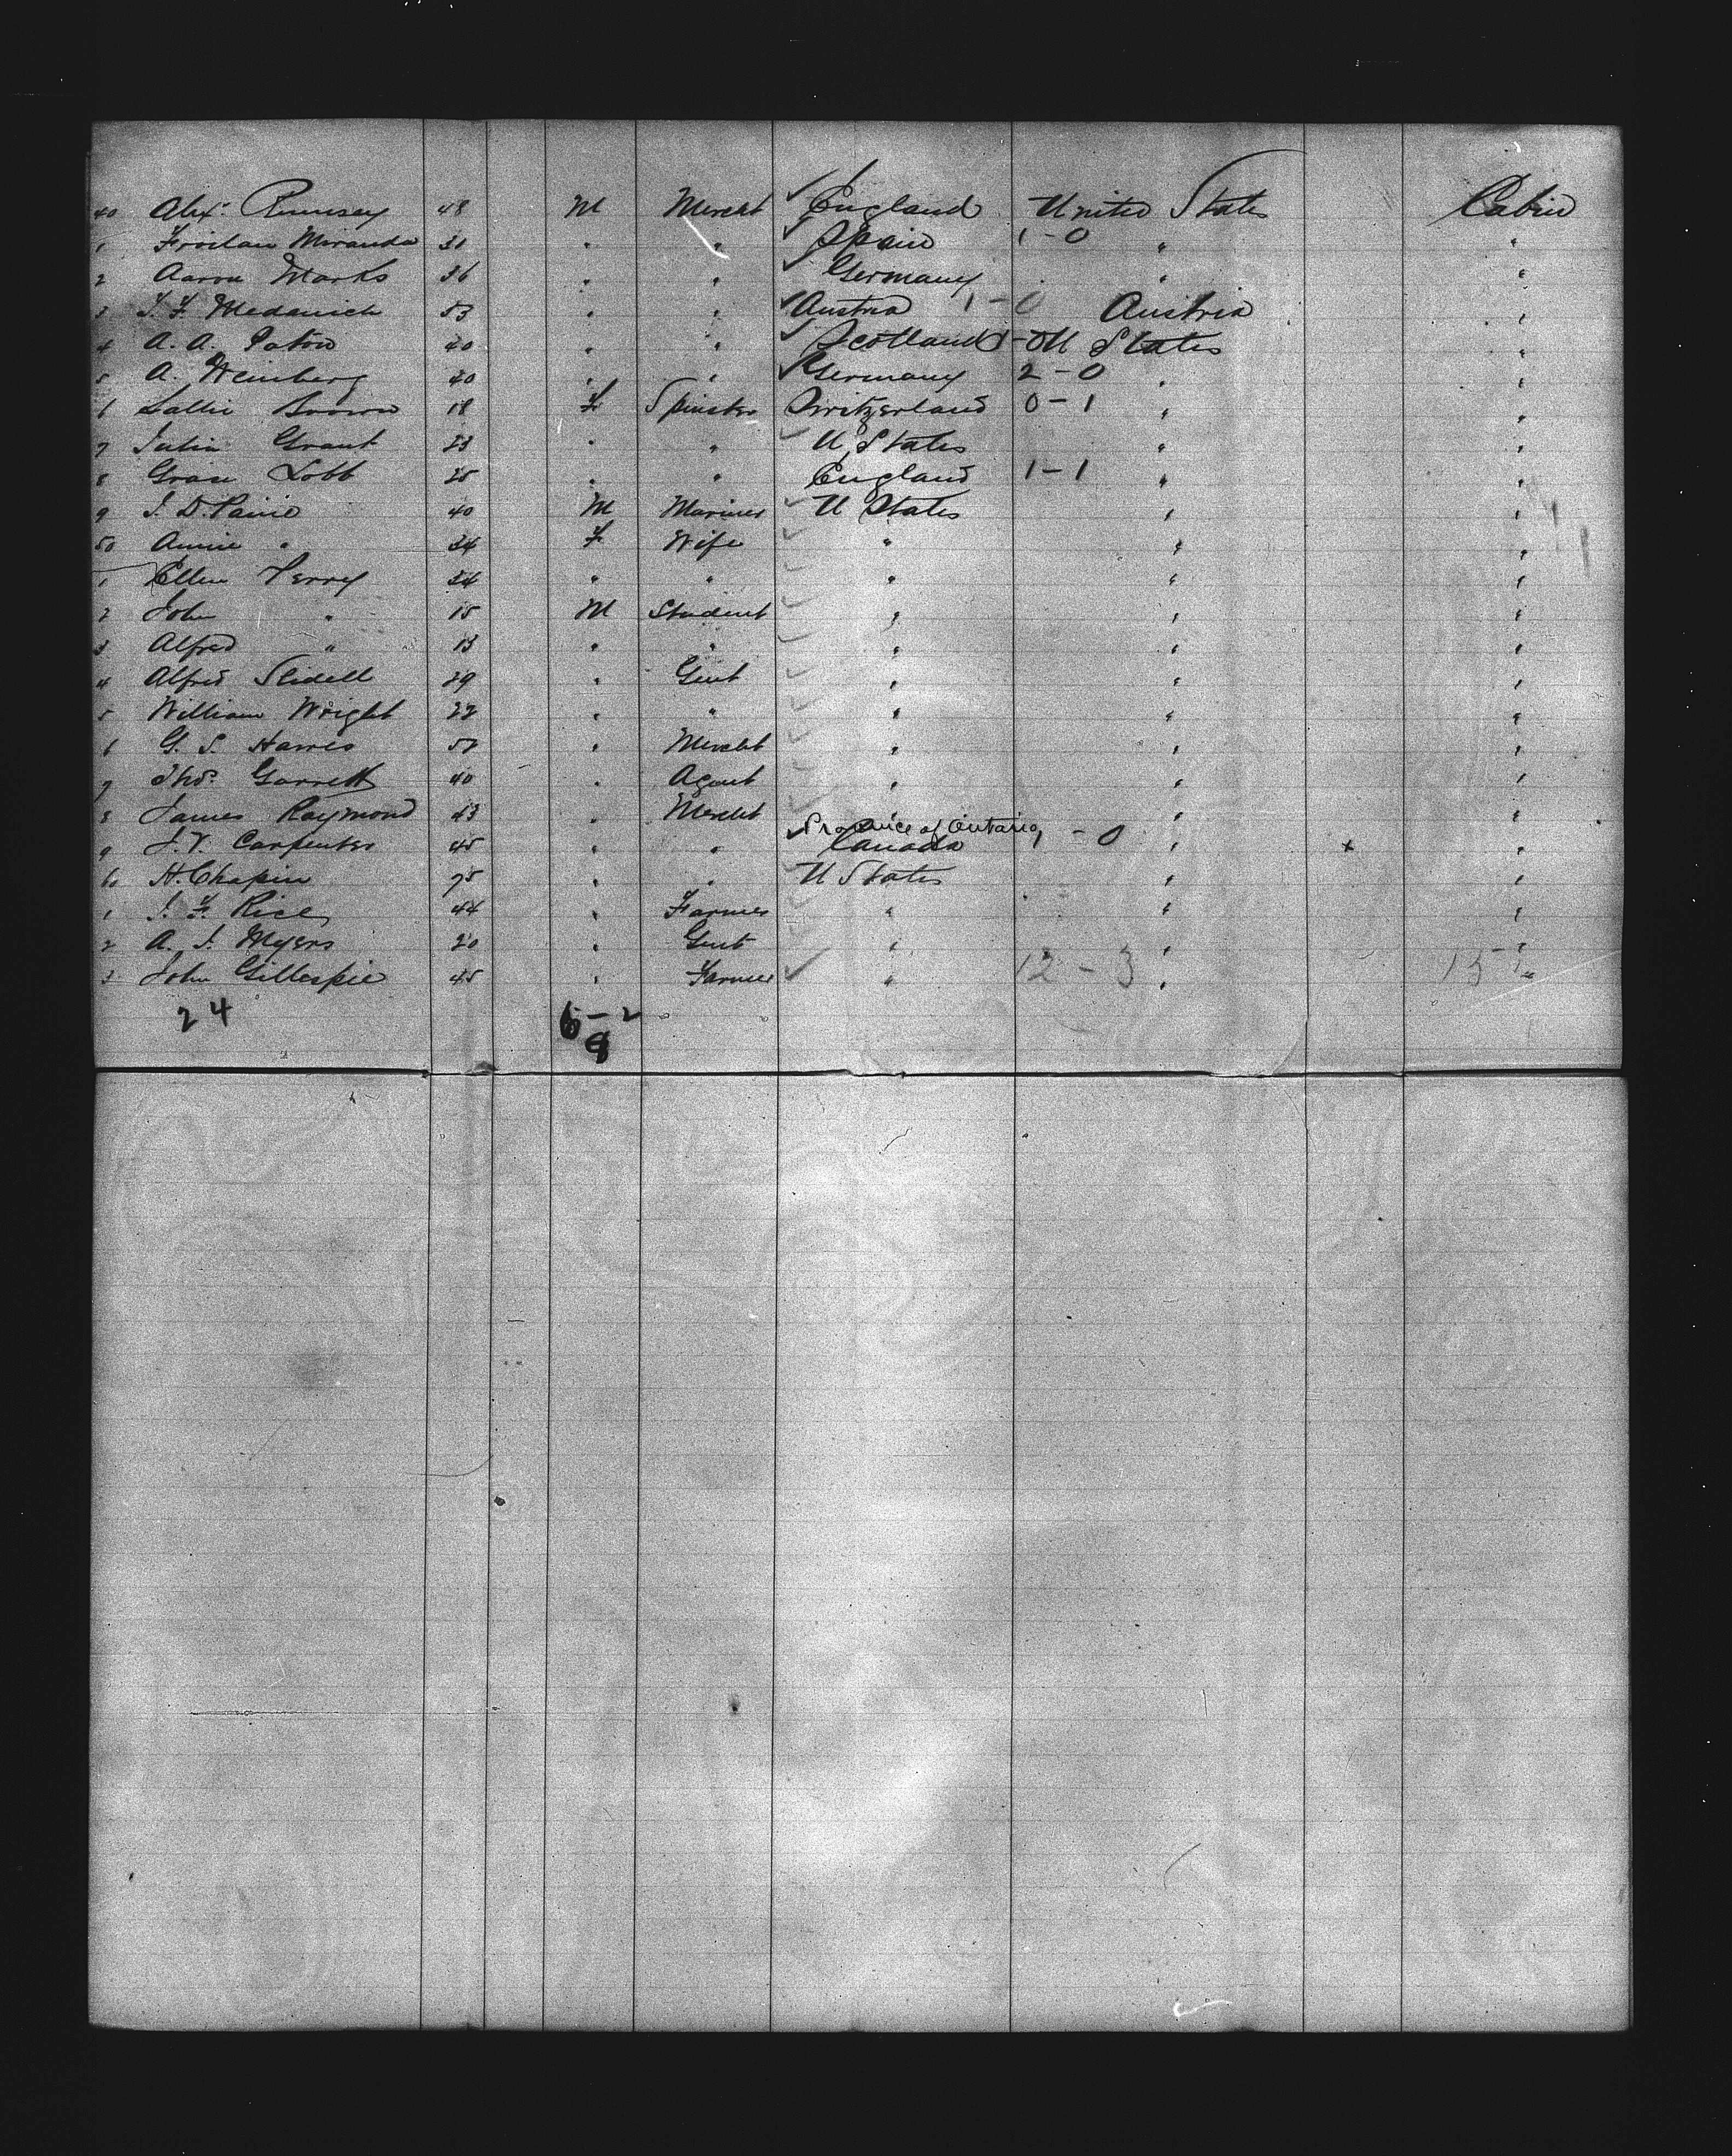 40 Alex. Rumsey 48 M Mercht England United States Cabin
1 Froilan Miranda 31 " " Spain 1-0 " "
2 Aaron Marks 36 " " Germany " "
3 Medanich 53 " " Austria 1-0 Austria "
4 A. A. Paton 40 " " Scotland 1-0 U States "
5 A. Weinberg 40 " " Germany 2-0 " "
6 Sallie Brown 18 F Spinster Switzerland 0-1 " "
7 Julia Grant 23 " " U States " "
8 Grace Lobb 25 " " England 1-1 " "
9 J. D. Paine 40 M Mariner U States " "
50 Annie " 34 F Wife " " "
1 Ellen Perry 34 " " " " "
2 John " 15 M Student " " "
3 Alfred " 13 " " " " "
4 Alfred Slidell 29 " Gent " " "
5 William Wright 22 " " " " "
6 G. S. Harris 57 " Mercht " " "
7 Thos. Garrett 40 " Agent " " "
8 James Raymond 43 " Mercht " " "
Province of Ontario,
9 J. V. Carpenter 45 " " Canada 1-0 " x "
60 H. Chapin 75 " " U States " "
1 J. F. Rice 44 " Farmer " " "
2 A. J. Myers 20 " Gent " " "
3 John Gillespie 45 " Farmer " 12-3 " 15 "
24 6-2
8